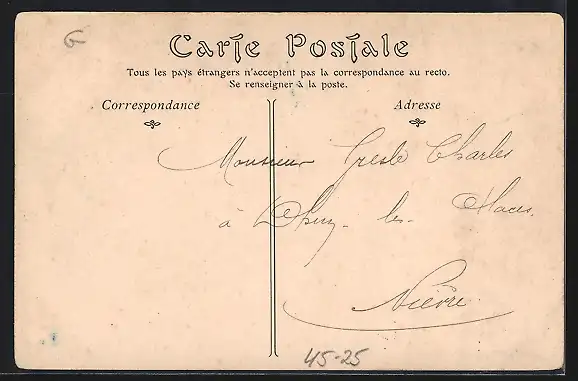 G
Carte Postale
Tous les pays étrangers n'acceptent pas la correspondance au recto.
Se renseigner à la poste.
Correspondance
Adresse
Monsieur Charles
à les
Nièvre
45-25